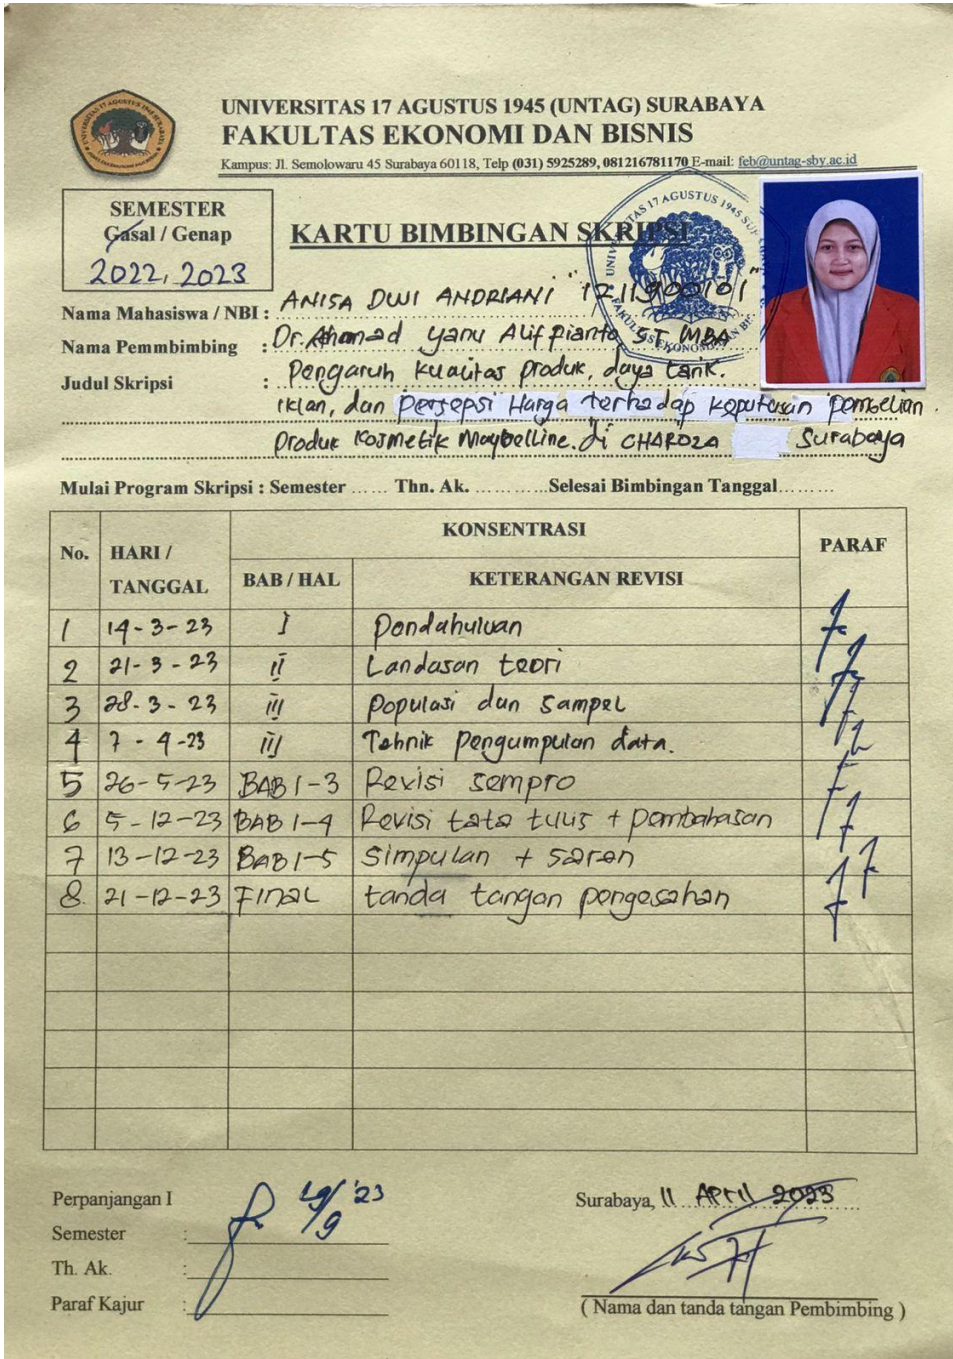 UNIVERSITAS 17 AGUSTUS 1945 (UNTAG) SURABAYA
FAKULTAS EKONOMI DAN BISNIS
Kampus: Jl. Semolowaru 45 Surabaya 60118, Telp (031) 5925289, 081216781170 E-mail: feb@untag-sby.ac.id
SEMESTER
Gasal / Genap
2022, 2023
KARTU BIMBINGAN SKRIPSI
Nama Mahasiswa / NBI : ANISA DWI ANDRIANI "1211900101"
Nama Pemmbimbing : Dr. Ahmad Yanu Alif Fianto, ST, MBA
Judul Skripsi : Pengaruh kualitas produk, daya tarik
iklan, dan persepsi Harga terhadap keputusan pembelian
produk kosmetik Maybelline di CHAROZA Surabaya
Mulai Program Skripsi : Semester ...... Thn. Ak. ............Selesai Bimbingan Tanggal.........
No. HARI / TANGGAL KONSENTRASI PARAF
BAB / HAL KETERANGAN REVISI
1 14-3-23 I Pendahuluan
2 21-3-23 II Landasan teori
3 28-3-23 III Populasi dan Sampel
4 7-4-23 III Tehnik Pengumpulan data.
5 26-5-23 BAB 1-3 Revisi sempro
6 5-12-23 BAB 1-4 Revisi tata tulis + pembahasan
7 13-12-23 BAB 1-5 Simpulan + saran
8. 21-12-23 FINAL tanda tangan pengesahan
Perpanjangan I
Semester :
Th. Ak. :
Paraf Kajur :
Surabaya, 11 April 2023
( Nama dan tanda tangan Pembimbing )